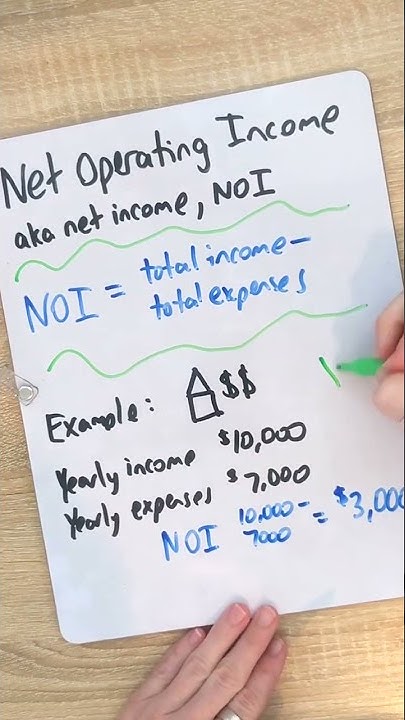 Net Operating Income
aka net income, NOI
NOI = total income -
total expenses
Example: $$
Yearly income $10,000
Yearly expenses $7,000
NOI 10,000 - = $3,000
7000